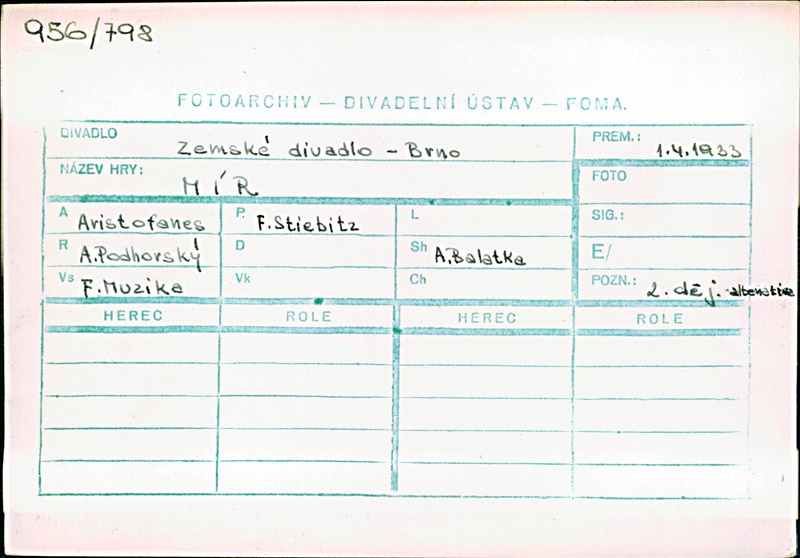 956/798
FOTOARCHIV — DIVADELNÍ ÚSTAV — FOMA.
DIVADLO Zemské divadlo - Brno PREM.: 1.4.1933
NÁZEV HRY: MÍR FOTO
A Aristofanes P. F. Stiebitz L SIG.:
R A. Podhorský D Sh A. Balatka E/
Vs F. Muzika Vk Ch POZN.: 2. děj.
HEREC ROLE HEREC ROLE